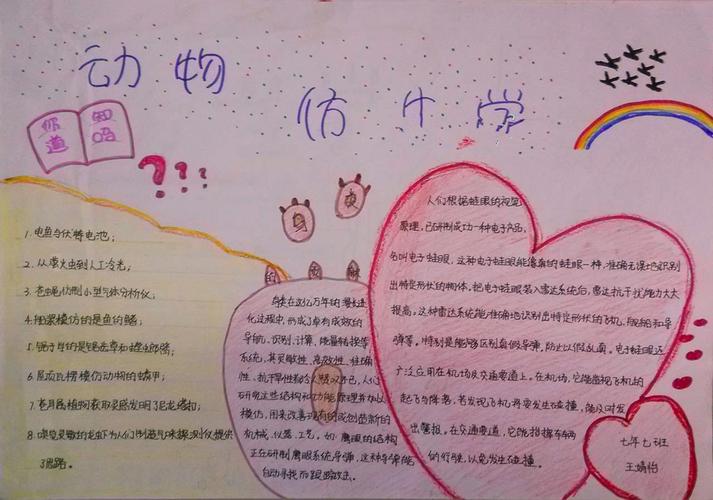 动物
仿生学
你知
道吗
???
1. 电鱼与伏特电池;
2. 从萤火虫到人工冷光;
3. 苍蝇仿制小型气体分析仪;
4. 船桨模仿的是鱼的鳍;
5. 锯子
6. 屋顶瓦楞模仿动物的鳞甲;
7. 苍耳属植物获取灵感发明了尼龙搭扣;
8. 嗅觉灵敏的龙虾为人们制造气味探测仪提供
了思路。
鸟类在这亿万年的漫长进
化过程中,形成了卓有成效的
导航、识别、计算、能量转换等
系统,其灵敏性、高效性、准确
性、抗干扰性
研究这些结构和功能原理并加以
模仿,用来改善现有的或创造新的
机械、仪器、工艺。如:鹰眼的结构
正在研制鹰眼系统导弹,这种导弹能
自动寻找而跟踪攻击。
人们根据蛙眼的视觉
原理,已研制成功一种电子产品,
名叫电子蛙眼,这种电子蛙眼能像真的蛙眼一样,准确无误地识别
出特定形状的物体,把电子蛙眼装入雷达系统后,雷达抗干扰能力大大
提高。这种雷达系统能准确地识别出特定形状的飞机、舰船和导
弹等。特别是能够区别真假导弹,防止以假乱真。电子蛙眼还
广泛应用在机场及交通要道上。在机场,它能监视飞机的
起飞与降落,若发现飞机将要发生碰撞,能及时发
出警报。在交通要道,它能指挥车辆
的行驶,以免发生碰撞。
七年七班
王婧怡